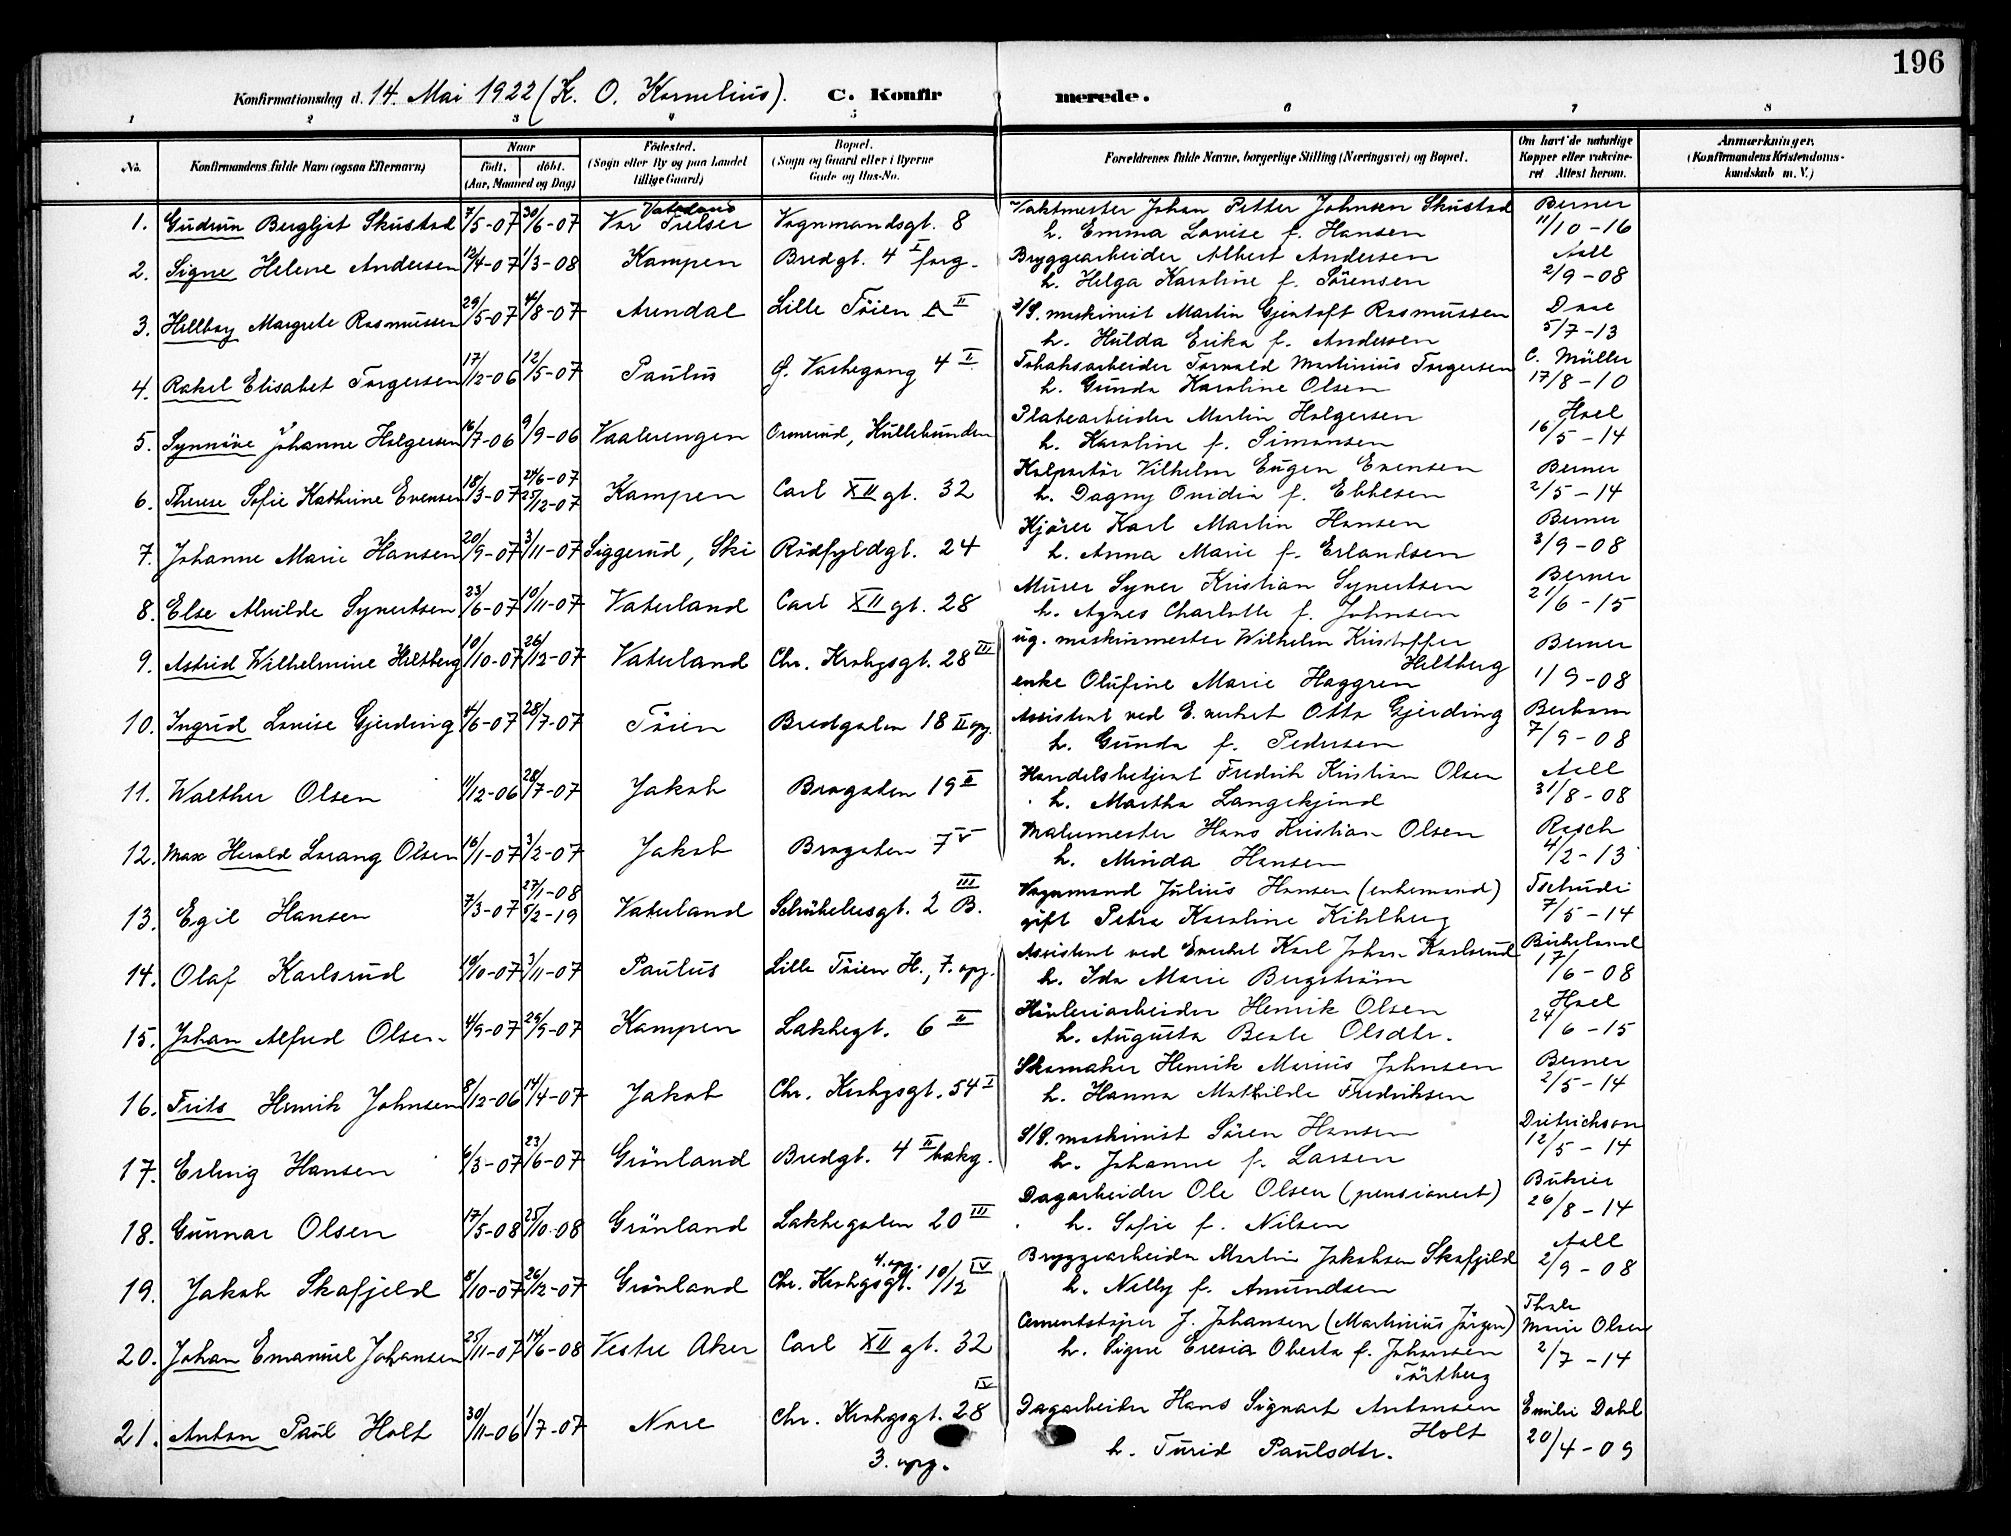 196
Konfirmationsdag d. 14. Mai 1922 (K. O. Kornelius). C. Konfirmerede.
1 2 3 4 5 6 7 8
No. Konfirmandens fulde Navn (ogsaa Efternavn) Naar født, døbt. (Aar, Maaned og Dag) Fødested. (Sogn eller By og paa Landet tillige Gaard) Bopæl. (Sogn og Gaard eller i Byerne Gade og Hus-No. Forældrenes fulde Navne, borgerlige Stilling (Næringsvei) og Bopæl. Om havt de naturlige Kopper eller vakcineret. Attest herom. Anmærkninger. (Konfirmandens Kristendomskundskab m. V.)
1. Gudrun Bergljot Skustad 7/5-07 30/6-07 Vor Frelser Vognmandsgt. 8 Vaktmester Johan Petter Johnsen Skustad Berner
h. Emma Lovise f. Hansen 11/10-16
2. Signe Helene Andersen 12/4-07 1/3-08 Kampen Bredgt. 4 I forg. Bryggearbeider Albert Andersen Aall
h. Helga Karoline f. Sörensen 2/9-08
3. Hellbog Margrete Rasmussen 29/5-07 4/8-07 Arendal Lille Töien A II D/S. maskinist Martin Gjentoft Rasmussen Daae
h. Hulda Erika f. Andersen 5/7-13
4. Rakel Elisabet Torgersen 17/12-06 12/5-07 Paulus G. Vaskegang 4 II Tobaksarbeider Torvald Martinius Torgersen C. Müller
h. Gunda Karoline Olsen 17/8-10
5. Synnöve Johanne Holgersen 16/7-06 9/9-06 Vaalerengen Ormerud, Kullebunden Platearbeider Martin Holgersen Hoel
h. Karoline f. Simonsen 16/5-14
6. Therese Sofie Kathrine Evensen 18/3-07 24/6-07 25/12-07 Kampen Carl XII gt. 32 Kolportör Vilhelm Eugen Evensen Berner
h. Dagny Ovidia f. Ebbesen 2/5-14
7. Johanne Marie Hansen 20/9-07 3/11-07 Siggerud, Ski Rödfyldgt. 24 Kjörer Karl Martin Hansen Berner
h. Anna Marie f. Erlandsen 3/9-08
8. Else Alvilde Synertsen 23/6-07 10/11-07 Vaterland Carl XII gt. 28 Murer Syver Kristian Synertsen Berner
h. Agnes Charlotte f. Johnsen 21/6-15
9. Astrid Wilhelmine Hiltberg 10/10-07 26/12-07 Vaterland Chr. Krohgsgt. 28 III ug. maskinmester Wilhelm Kristoffer Hiltberg Berner
enke Olufine Marie Haggren 1/9-08
10. Ingrid Lovise Gjerding 4/6-07 28/7-07 Töien Bredgaten 18 II opg. Assistent ved E. verket Otto Gjerding Berhom
h. Gunda f. Pedersen 7/9-08
11. Walther Olsen 11/12-06 28/7-07 Jakob Brogaten 19 II Handelsbetjent Fredrik Kristian Olsen Aall
h. Martha Langekjend 31/8-08
12. Max Harald Lorang Olsen 16/1-07 3/2-07 Jakob Brogaten 7 V Malermester Hans Kristian Olsen Rasch
h. Minda Hansen 4/2-13
13. Egil Hansen 7/3-07 27/1-08 5/2-19 Vaterland Schübelersgt. 2 B. III Vognmand Julius Hansen (enkemand) Tschudi
gift Petra Karoline Kihlberg 7/5-14
14. Olaf Karlsrud 10/10-07 3/11-07 Paulus Lille Töien H., 7. opg. Assistent ved Everket Karl Johan Karlsrud Birkeland
h. Ida Marie Bergström 17/6-08
15. Johan Alfred Olsen 4/9-07 29/9-07 Kampen Lakkegt. 6 II Hövleriarbeider Henrik Olsen Hoel
h. Augusta Beate Olsdtr. 24/6-15
16. Frits Henrik Johnsen 8/12-06 14/4-07 Jakob Chr. Krohgsgt. 54 I Skomaker Henrik Marius Johnsen Berner
h. Hanna Mathilde Fredriksen 2/5-14
17. Erling Hansen 6/3-07 23/6-07 Grönland Bredgt. 4 II bakg. S/S. maskinist Sören Hansen Dietrichson
h. Johanne f. Larsen 12/5-14
18. Gunnar Olsen 17/5-08 25/10-08 Grönland Lakkegaten 20 III Dagarbeider Ole Olsen (pensionert) Bukier
h. Sofie f. Nilsen 26/8-14
19. Jakob Skafjeld 8/10-07 26/12-07 Grönland Chr. Krohgsgt. 10/12 IV 4. opg. Bryggearbeider Martin Jakobsen Skafjeld Aall
h. Nelly f. Amundsen 2/9-08
20. Johan Emanuel Johansen 25/11-07 14/6-08 Vestre Aker Carl XII gt. 32 Cementstöper J. Johansen (Martinius Jörgen) Marie Olsen
h. Signe Eresia Oberta f. Johansen Törtberg 2/7-14
21. Anton Paul Holt 30/11-06 1/7-07 Nore Chr. Krohgsgt. 28 IV Dagarbeider Hans Sigvart Antonsen Holt Emilie Dahl
3. opg. h. Turid Paulsdtr. 20/4-09